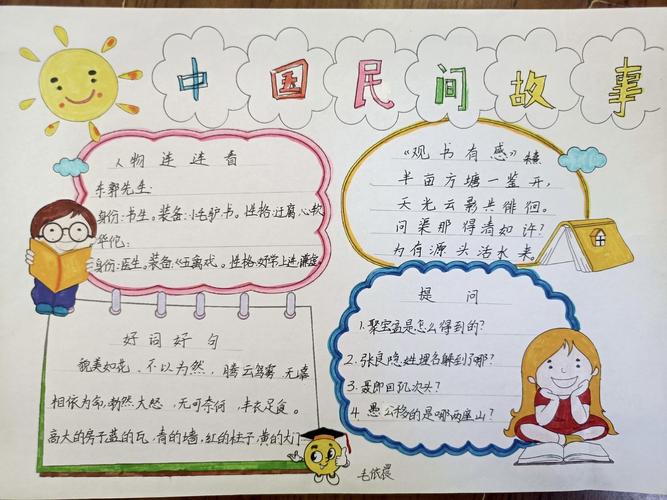 中国民间故事
人物连连看
东郭先生:
身份:书生。装备:小毛驴、书。性格:迂腐、心软
华佗:
身份:医生。装备:《五禽戏。性格:好学上进、谦虚。
《观书有感》朱熹
半亩方塘一鉴开,
天光云影共徘徊。
问渠那得清如许?
为有源头活水来。
好词好句
貌美如花、不以为然,腾云驾雾、无依
相依为命、勃然大怒、无可奈何、丰衣足食。
高大的房子蓝的瓦,青的墙,红的柱子,黄的大门
提问
1.聚宝盆是怎么得到的?
2.张良隐姓埋名躲到了哪?
3.聂郎回几次头?
4.愚公移的是哪两座山?
毛依晨